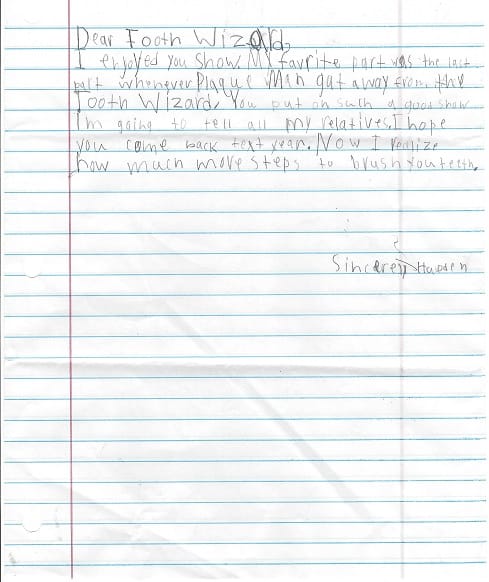 Dear Tooth Wizard,
I enjoyed you show. My favrite part was the last
part whenever Plaque Man gat away from the
Tooth Wizard. You put on such a good show
I'm going to tell all my relatives. I hope
you come back text year. Now I realize
how much more steps to brush you teeth.
Sincerely, Hayden